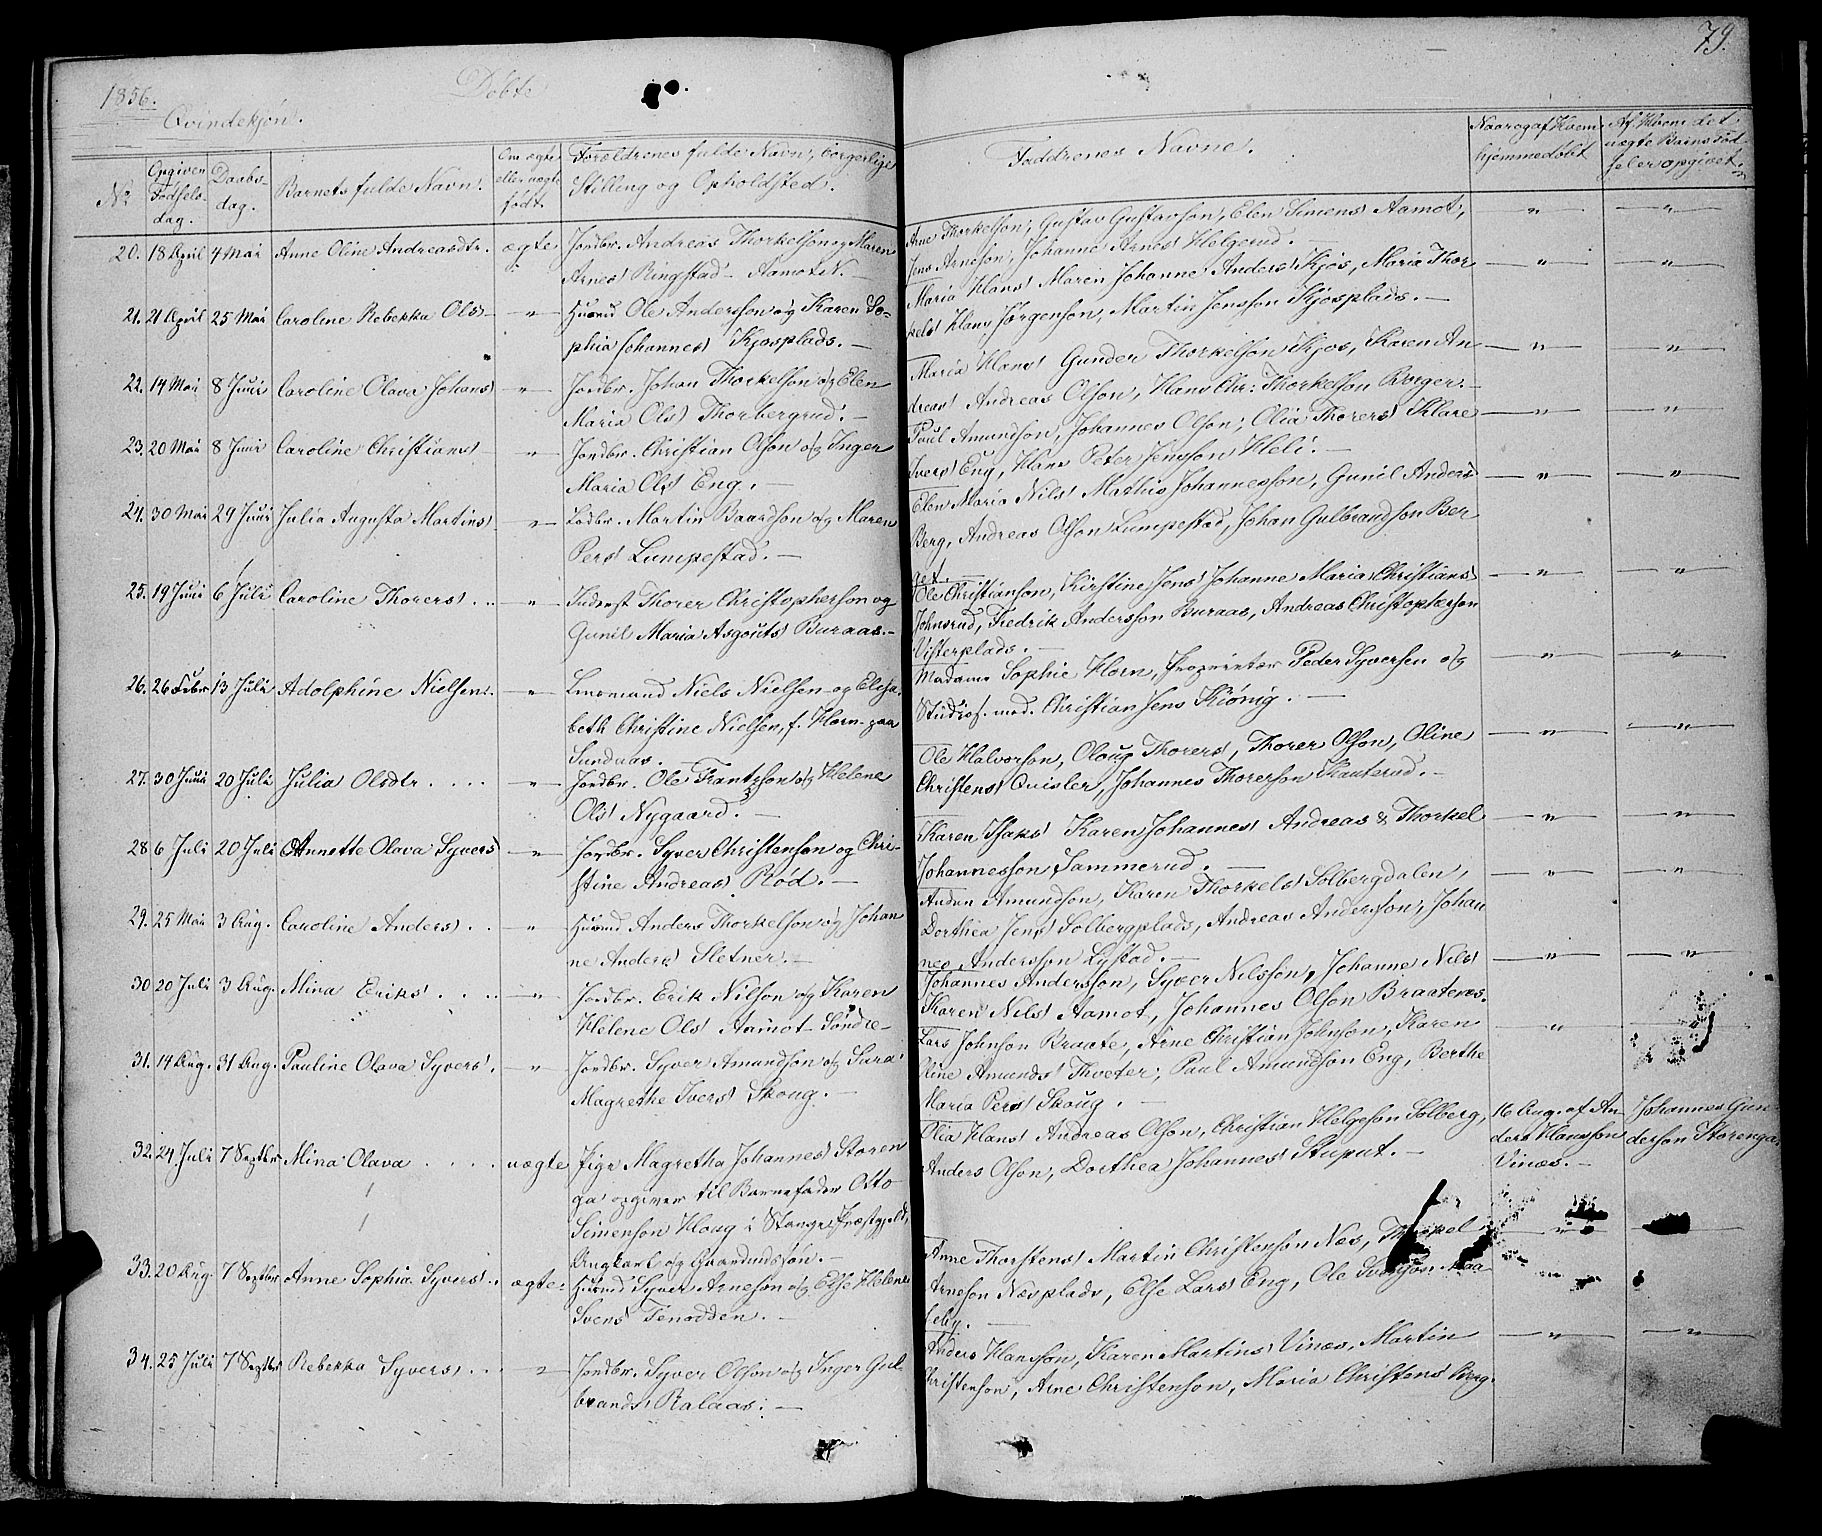 1856.
Döbte
79.
Qvindekjön.
No
Opgiven Födsels-dag.
Daabs-dag.
Barnets fulde Navn.
Om ægte eller uægte födt.
Forældrenes fulde Navn, borgerlige Stilling og Opholdsted.
Faddrenes Navne.
Naar og af Hvem hjemmedöbt
Af Hvem det uægte Barns Födsel er opgivet.
20. 18 April 4 Mai Anne Oline Andreasdtr. ægte Jordbr. Andreas Thorkelson og Maren
Arnes Ringstad - Aamot N. —
Arne Thorkelson, Gustav Gustavson, Elen Simens Aamot,
Jens Arneson, Johanne Arnes Helgerud. —
21. 21 April 25 Mai Caroline Rebekka Ols — " — Huusmd Ole Andersson og Karen So-
phia Johannes Kjosplads. —
Maria Hans Maren Johanne Anders Kjos, Maria Thor
kels Hans Jörgenson, Martin Jensson Kjosplads. —
22. 14 Mai 8 Juni Caroline Olava Johans — " — Jordbr. Johan Thorkelson og Elen
Maria Ols Thorbergrud. —
Maria Hans Gunder Thorkelson Kjos, Karen An
dreas Andreas Olson, Hans Chr: Thorkelson Ringer. —
23. 20 Mai 8 Juni Caroline Christians — " — Jordbr. Christian Olson og Inger
Maria Ols Eng. —
Paul Amundson, Johannes Olson, Olia Thorers Klare
Ivers Eng, Hans Peter Jensson Heli. —
24. 30 Mai 29 Juni Julia Augusta Martins — " — Lodbr. Martin Baardson og Maren
Pers Lumpestad. —
Elen Maria Nils Mathis Johannesson, Gunil Anders
Berg, Andreas Olson Lumpestad, Johan Gulbrandson Ber
get. —
25. 19 Juni 6 Juli Caroline Thorers — " — Inderst Thorer Christopherson og
Gunil Maria Asgouts Buraas. —
Ole Christianson, Kirstine Jens Johanne Maria Christians
Johnsrud, Fredrik Andersson Buraas, Andreas Christopherson
Visterplads. —
26. 26 Febr 13 Juli Adolphine Nielsen. — " — Lensmand Niels Nielsen og Elisa-
beth Christine Nielsen, f. Horn paa
Sundnas. —
Madame Sophie Horn, Proprietær Peder Syversen og
Studios. med. Christian Jens Kiönig. —
27. 30 Juni 20 Juli Julia Olsdtr — " — Jordbr. Ole Frantsson og Helene
Ols Nygaard. —
Ole Halvorson, Oloug Thorers, Thorer Olson, Oline
Christens Qvisler, Johannes Thorerson Kanterud. —
28. 6 Juli 20 Juli Annette Olava Syvers — " — Jordbr. Syver Christenson og Chri-
stine Andreas Röd. —
Karen Isaks Karen Johannes Andreas & Thorkel
Johannesson Sammerud. —
29. 25 Mai 3 Aug. Caroline Anders — " — Huusmd Anders Thorkelson og Johan
ne Anders Sletner. —
Anden Amundson, Karen Thorkels Solbergdalen,
Dorthea Jens Solbergplads, Andreas Andersson, Johan
nes Andersson Lystad. —
30 20 Juli 3 Aug. Mina Eriks — " — Jordbr. Erik Nilson og Karen
Helene Ols Aamot Söndre —
Johannes Andersson, Syver Nilsson, Johanne Nils
Karen Nils Aamot, Johannes Olson Braatenes.
31. 14 Aug. 31 Aug. Pauline Olava Syvers. — " — Jordbr. Syver Amundson og Sara
Magrethe Ivers Skoug. —
Lars Johnson Braate, Arne Christian Johnson, Karen
Oline Amunds Thveter, Paul Amundson Eng, Berthe
Maria Pers Skoug. —
32. 24 Juli 7 Septbr Mina Olava uægte Pige Magretha Johannes Storen
ga opgiver til Barnefader Otto
Simenson Houg i Stange Præstgjeld,
Ungkarl og Gaardmandssön. —
Olia Hans Andreas Olson, Christian Helgeson Solberg,
Anders Olson, Dorthea Johannes Stuput. —
16 Aug. af An
ders Hansson
Vinæs. —
Johannes Gun
derson Storenga
33. 20 Aug. 7 Septbr Anne Sophia Syvers ægte Huusmd Syver Arneson og Else Helene
Svens Tenodden. —
Anne Thorstens Martin Christenson Næs, Thorkel
Arneson Næsplads, Else Lars Eng, Ole Svenson Maa
leby. —
34. 25 Juli 7 Septbr Rebekka Syvers — " — Jordbr. Syver Olson og Inger Gul-
brands Ralaas. —
Anders Hansson, Karen Martins Vinæs, Martin
Christenson, Arne Christenson, Maria Christens Berg.